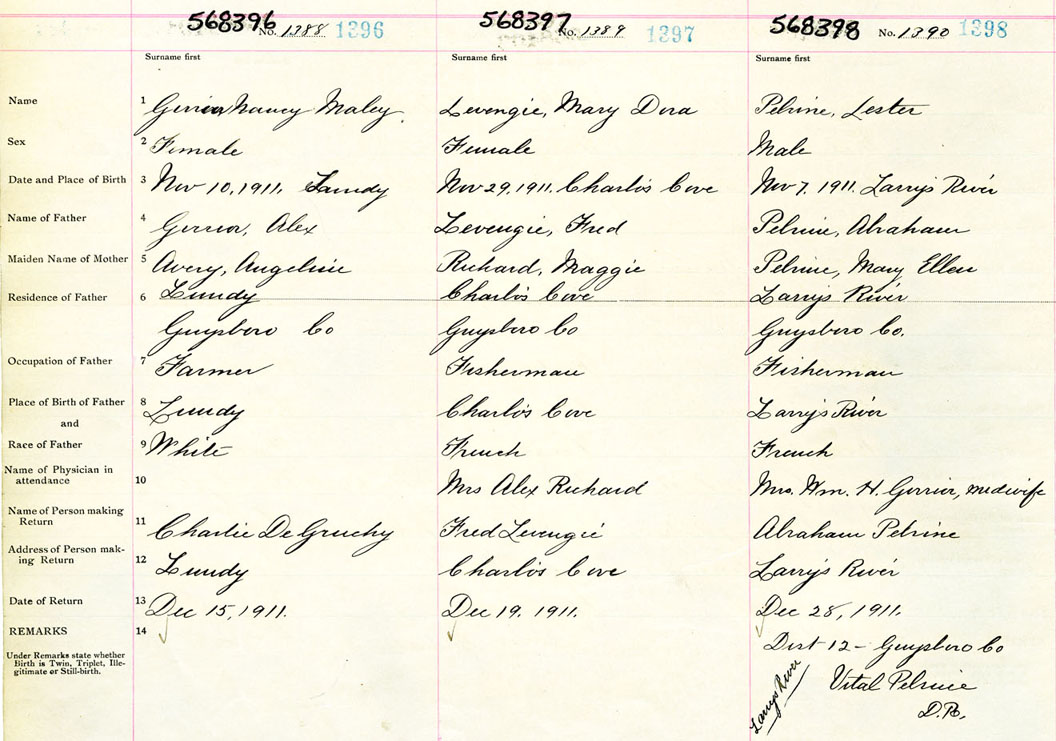 568396 No. 1388 1396 568397 No. 1389 1397 568398 No. 1390 1398
Surname first Surname first Surname first
Name 1 Gerrior, Nancy Maley Levengie, Mary Dora Pelrine, Lester
Sex 2 Female Female Male
Date and Place of Birth 3 Nov 10, 1911. Lundy Nov 29, 1911. Charlo's Cove Nov 7, 1911. Larry's River
Name of Father 4 Gerrior, Alex Levengie, Fred Pelrine, Abraham
Maiden Name of Mother 5 Avery, Angeline Richard, Maggie Pelrine, Mary Ellen
Residence of Father 6 Lundy Charlo's Cove Larry's River
Guysboro Co Guysboro Co Guysboro Co.
Occupation of Father 7 Farmer Fisherman Fisherman
Place of Birth of Father 8 Lundy Charlo's Cove Larry's River
and
Race of Father 9 White French French
Name of Physician in
attendance 10 Mrs Alex Richard Mrs. Wm. H. Gerrior, midwife
Name of Person making
Return 11 Charlie DeGruchy Fred Levengie Abraham Pelrine
Address of Person mak-
ing Return 12 Lundy Charlo's Cove Larry's River
Date of Return 13 Dec 15, 1911. Dec 19, 1911. Dec 28, 1911.
REMARKS 14
Dist 12 - Guysboro Co
Under Remarks state whether
Birth is Twin, Triplet, Ille-
gitimate or Still-birth.
Larrys River
Vital Pelrine
D.R.